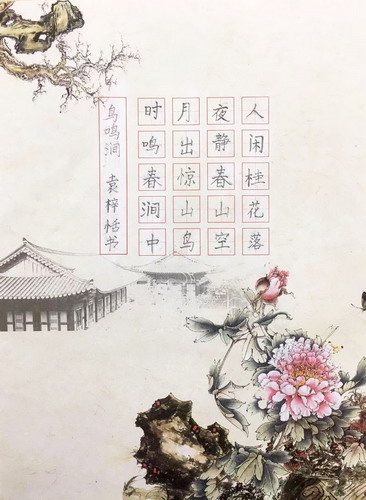 人闲桂花落
夜静春山空
月出惊山鸟
时鸣春涧中
鸟鸣涧 袁梓恬书